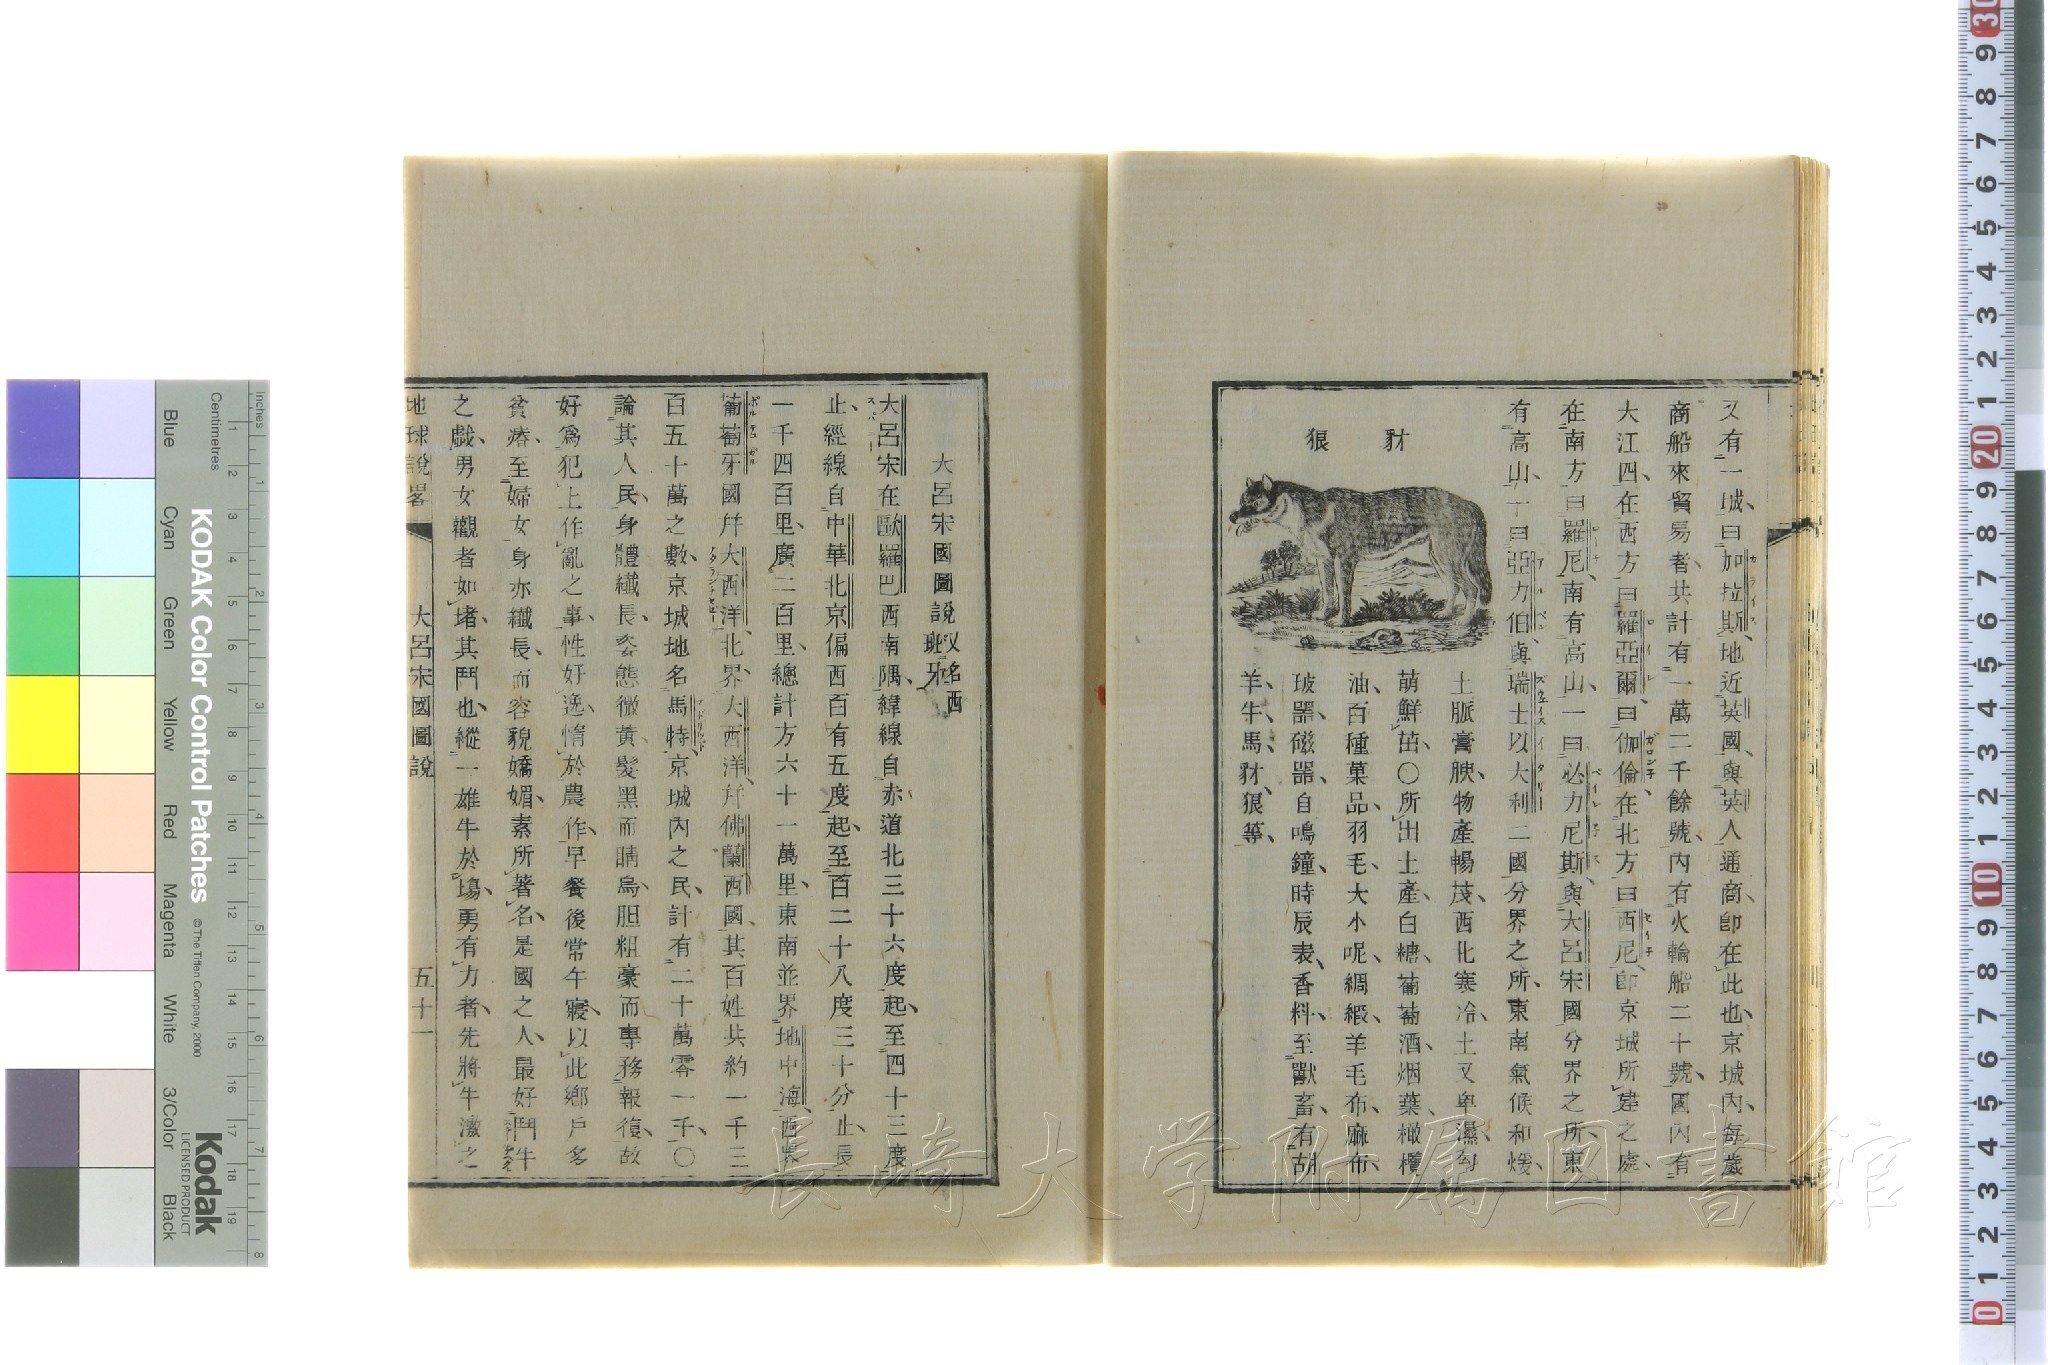 又有一城、曰加拉斯、地近英國、與英人通商、卽在此也、京城內、每歲
商船來貿易者、共計有一萬二千餘號、內有火輪船二十號、國內有
大江四、在西方、曰羅亞爾、曰伽倫、在北方曰西尼、卽京城所建之處、
在南方曰羅尼、南有高山、一曰必力尼斯、與大呂宋國分界之所、東
有高山、一曰亞力伯、與瑞士以大利二國分界之所、東南氣候和煖、
豺狼
土脈膏腴、物產暢茂、西北寒冷、土又卑濕、勾
萌鮮茁、〇所出土產、白糖、葡萄酒、烟葉、橄欖
油、百種菓品、羽毛、大小呢、綢緞、羊毛布、麻布、
玻器、磁器、自鳴鐘、時辰表、香料、至獸畜、有胡
羊、牛、馬、豺、狼等、
大呂宋國圖說 又名西班牙
大呂宋在歐羅巴西南隅、緯線自赤道北三十六度起、至四十三度
止、經線自中華北京偏西百有五度起、至百二十八度三十分止、長
一千四百里、廣二百里、總計方六十一萬里、東南並界地中海、西界
葡萄牙國幷大西洋、北界大西洋、幷佛蘭西國、其百姓共約一千三
百五十萬之數、京城地名馬特、京城內之民、計有二十萬零一千、〇
論其人民、身體纖長、姿態微黃、髮黑而睛烏、胆粗豪而專務報復、故
好爲犯上作亂之事、性好逸、惰於農作、早餐後常午寢、以此鄉戶多
貧瘠、至婦女身亦纖長、而容貌嬌媚、素所著名、是國之人、最好鬥牛
之戲、男女觀者如堵、其鬥也、縱一雄牛於塲、勇有力者、先將牛激之
地球說畧
大呂宋國圖說
五十一
KODAK Color Control Patches
© The Tiffen Company, 2000
Kodak
LICENSED PRODUCT
Inches
Centimetres
Blue Cyan Green Yellow Red Magenta White 3/Color Black
長崎大学附属図書館